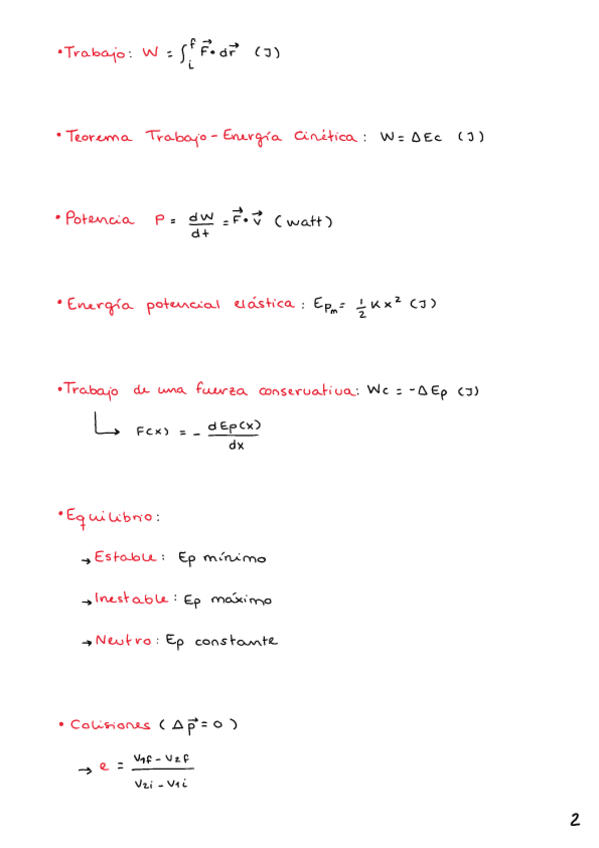 • Trabajo: W = ∫ᵢᶠ F⃗ • dr⃗ (J)
• Teorema Trabajo - Energía Cinética: W = ΔEc (J)
• Potencia P = dW/dt = F⃗ • v⃗ (watt)
• Energía potencial elástica: Epₘ = 1/2 K x² (J)
• Trabajo de una fuerza conservativa: Wc = -ΔEp (J)
↳ F(x) = - dEp(x)/dx
• Equilibrio:
→ Estable: Ep mínimo
→ Inestable: Ep máximo
→ Neutro: Ep constante
• Colisiones (Δp⃗ = 0)
→ e = V1f - V2f / V2i - V1i
2